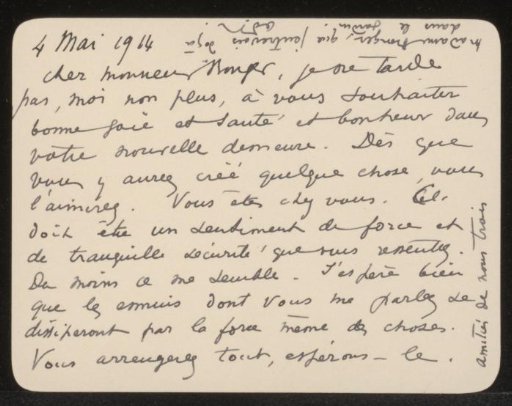 4 Mai 1914
cher monsieur Rouger, je ne tarde
pas, moi non plus, à vous souhaiter
bonne joie et santé et bonheur dans
votre nouvelle demeure. Dès que
vous y aurez créé quelque chose, vous
l'aimerez. Vous êtes chez vous. Ce
doit être un sentiment de force et
de tranquille sécurité que vous ressentez.
Du moins ce me semble. J'espère bien
que les ennuis dont vous me parlez se
dissiperont par la force même des choses.
Vous arrangerez tout, espérons-le.
amitiés de nous trois
madame Rouger, que j'entrevois déjà
dans le jardin